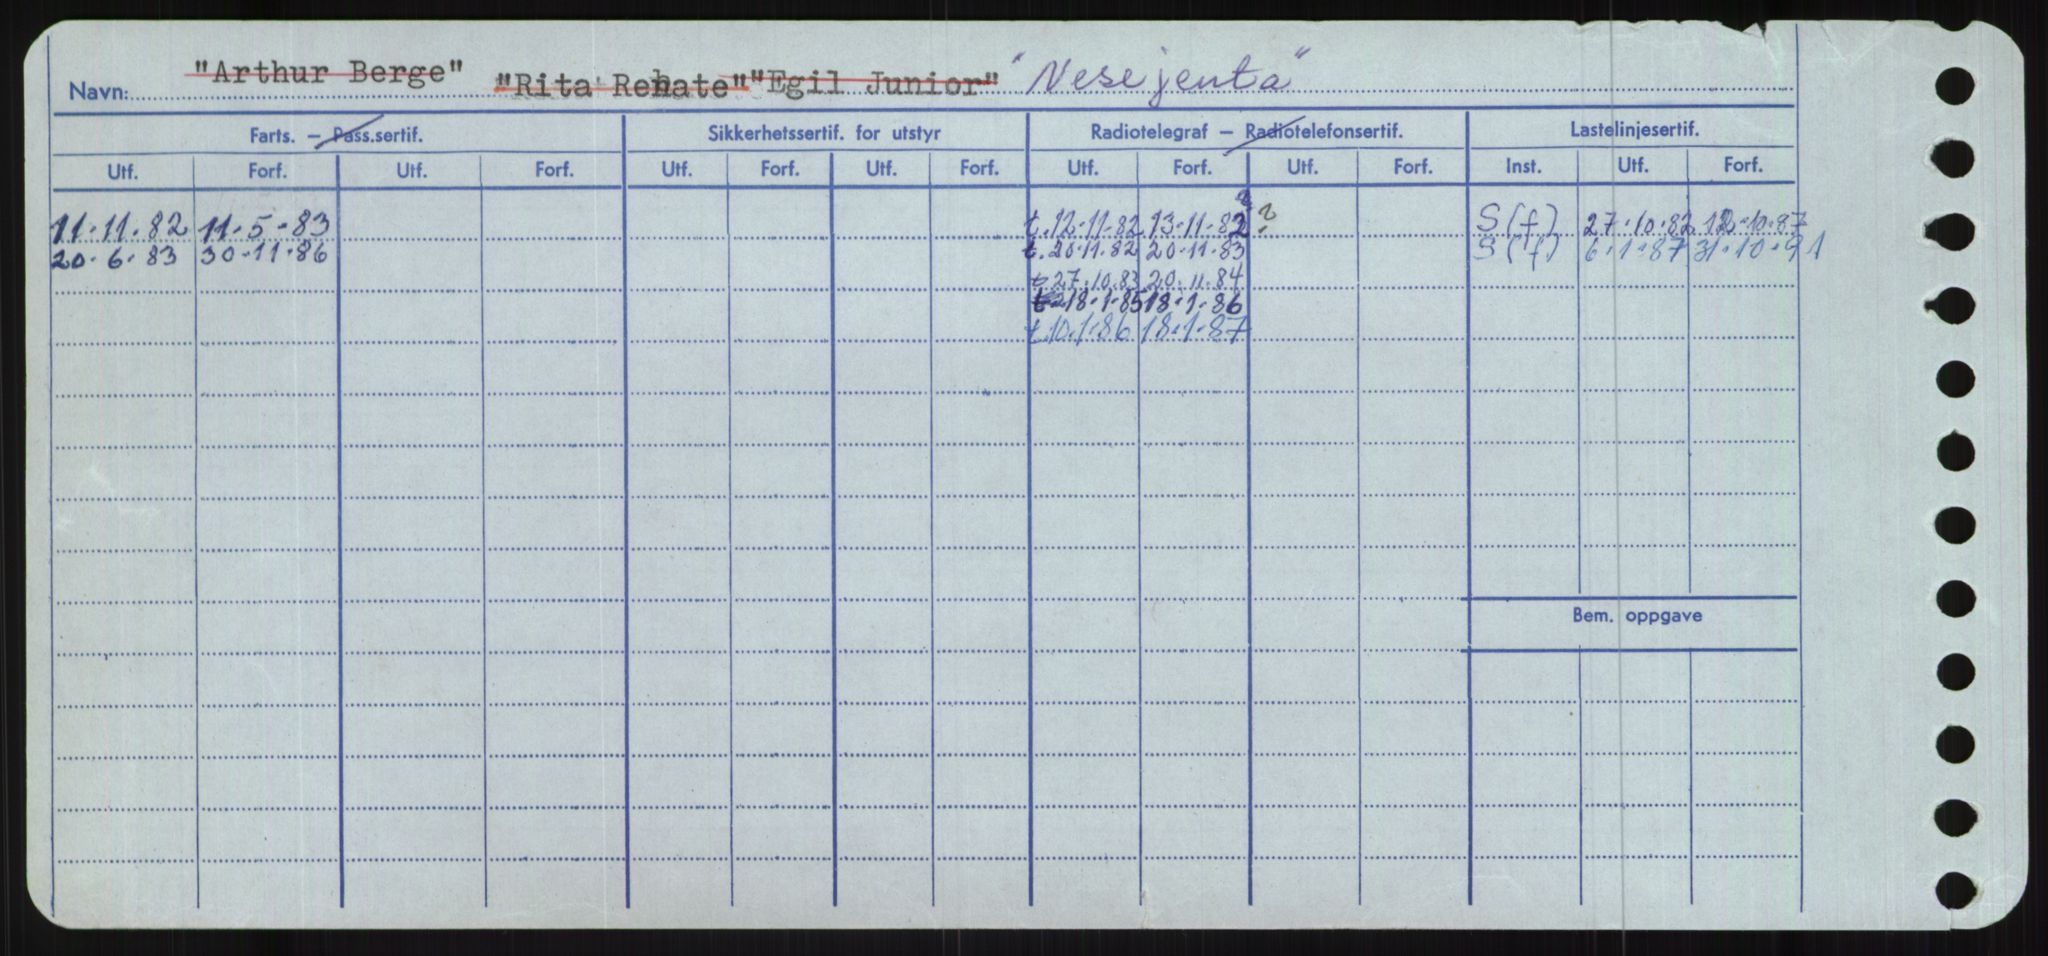 Navn: "Arthur Berge" "Rita Renate" "Egil Junior" "Nesejenta"
Farts. – Pass.sertif. Sikkerhetssertif. for utstyr Radiotelegraf – Radiotelefonsertif. Lastelinjesertif.
Utf. Forf. Utf. Forf. Utf. Forf. Utf. Forf. Utf. Forf. Utf. Forf. Inst. Utf. Forf.
11-11-82 11-5-83 t.12-11-82 13-11-82 ? S(f) 27-10-82 12-10-87
20-6-83 30-11-86 t.20-11-82 20-11-83 S(f) 6-1-87 31-10-91
t.27.10.83 20.11.84
t 18-1-85 18-1-86
t.10.1-86 18-1-87
Bem. oppgave